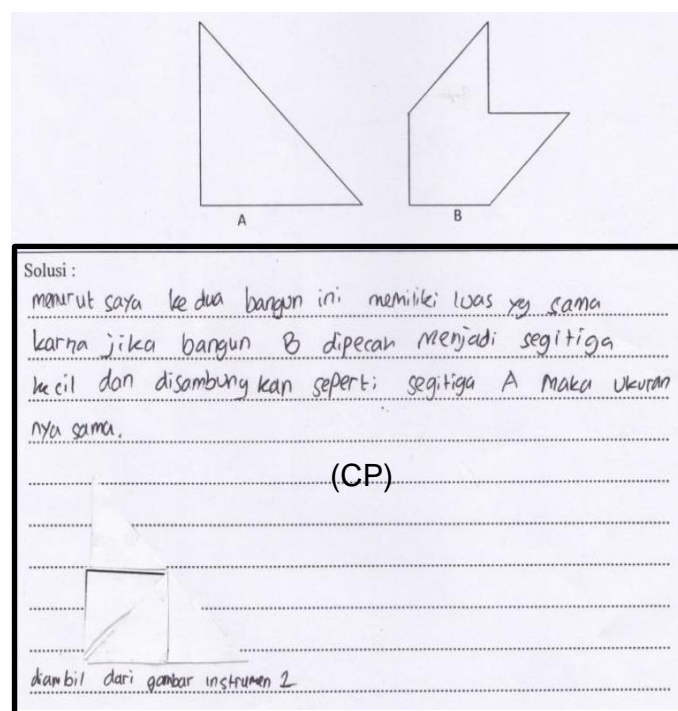 A
B
Solusi :
menurut saya ke dua bangun ini memiliki luas yg sama
karna jika bangun B dipecah menjadi segitiga
kecil dan disambung kan seperti segitiga A maka ukuran
nya sama.
(CP)
diambil dari gambar instrumen 2